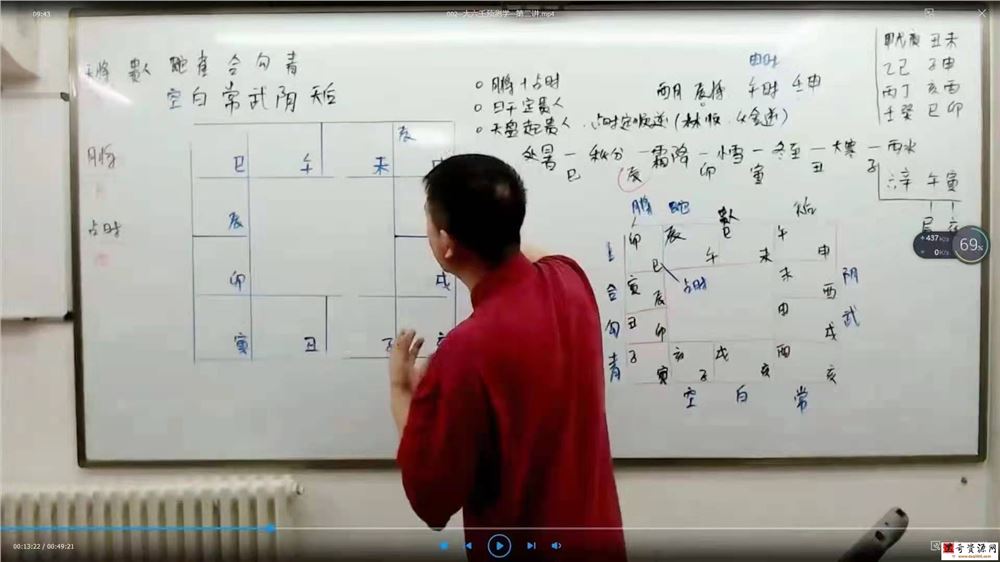 09:43
002--大六壬预测学--第二讲.mp4
天将 贵人 蛇 雀 合 勾 青
空 白 常 武 阴 天后
月将
占时
巳 午 未
辰
辰
卯 戌
寅 丑 子 亥
申时
○ 月将+占时
○ 日干定贵人
○ 天盘起贵人
酉月 辰将 午时 壬申
处暑 — 秋分 — 霜降 — 小雪 — 冬至 — 大寒 — 雨水
巳 辰 卯 寅 丑 子
丑未
乙己 子申
丙丁 亥酉
壬癸 巳卯
六辛 午寅
月将 蛇 贵人 后
卯 辰 巳 午
巳 午 未 申
占时
寅 辰 未 酉 阴
合
丑 卯 申 戌 武
勾
子 寅 亥 子 戌 酉 亥 亥
青
空 白 常
437K/s
0K/s
69%
00:13:22 / 00:49:21
资源网